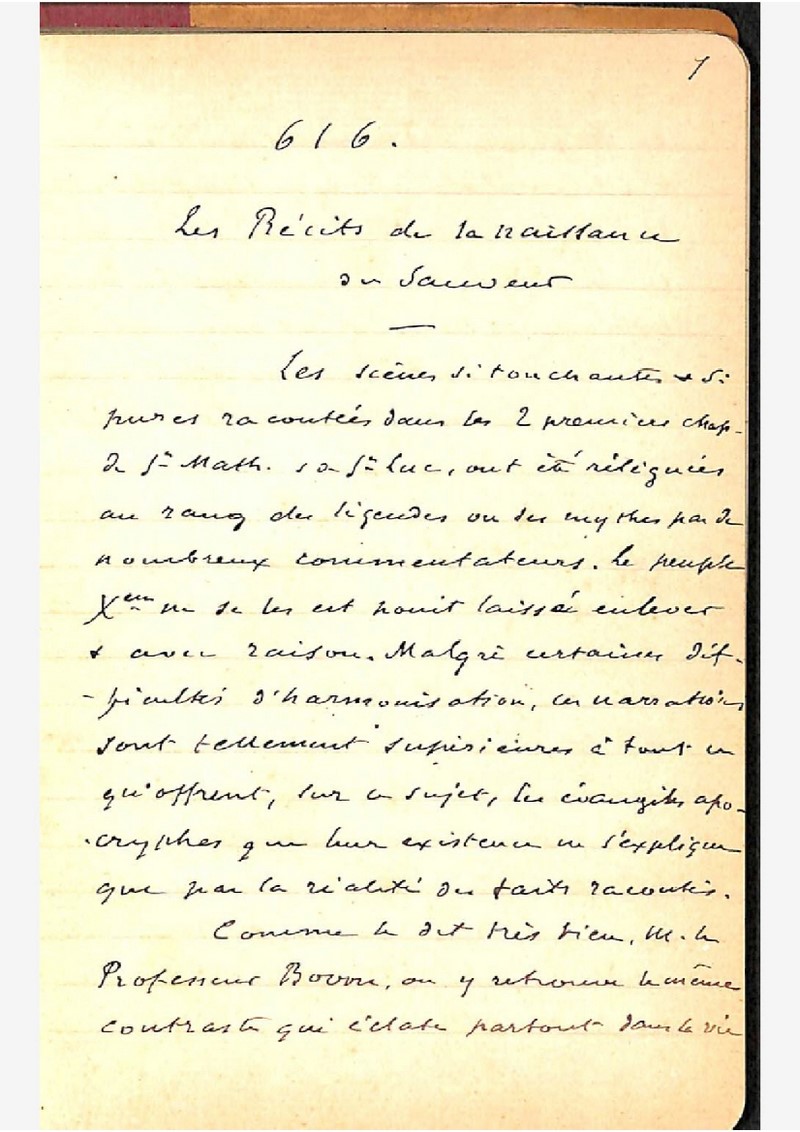 1
616.
Les Récits de la naissance
du Sauveur
Les scènes si touchantes & si
pures racontées dans les 2 premiers chap.
de St Math. & de St Luc, ont été réléguées
au rang des légendes ou des mythes par de
nombreux commentateurs. Le peuple
Xen ne se les est point laissé enlever
& avec raison. Malgré certaines dif-
-ficultés d'harmonisation, ces narrations
sont tellement supérieures à tout ce
qu'offrent, sur ce sujet, les évangiles apo-
-cryphes que leur existence ne s'explique
que par la réalité des faits racontés.
Comme le dit très bien, M. le
Professeur Bovon, on y retrouve le même
contraste qui éclate partout dans la vie